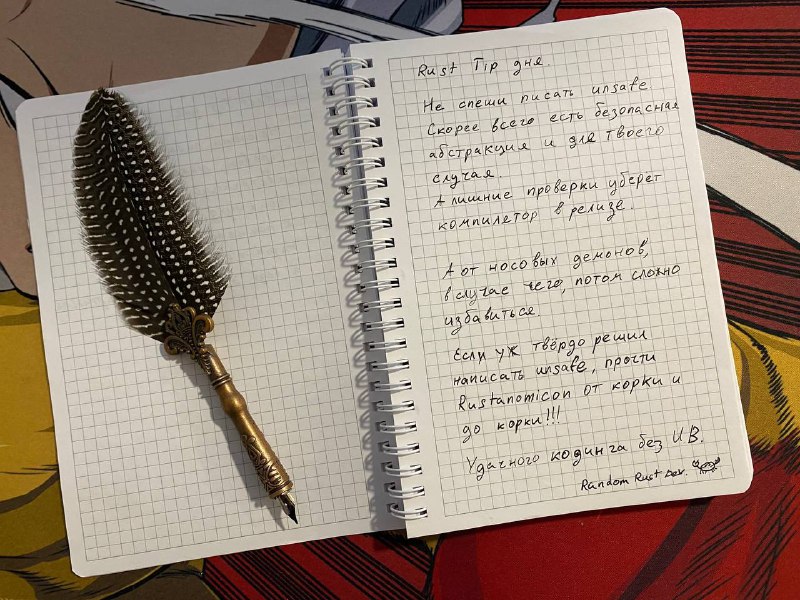 Rust Tip дня.
Не спеши писать unsafe
Скорее всего есть безопасная
абстракция и для твоего
случая.
А лишние проверки уберет
компилятор в релизе.
А от носовых демонов,
в случае чего, потом сложно
избавиться
Если уж твёрдо решил
написать unsafe, прочти
Rustanomicon от корки и
до корки!!!
Удачного кодинга без UB.
Random Rust Dev.